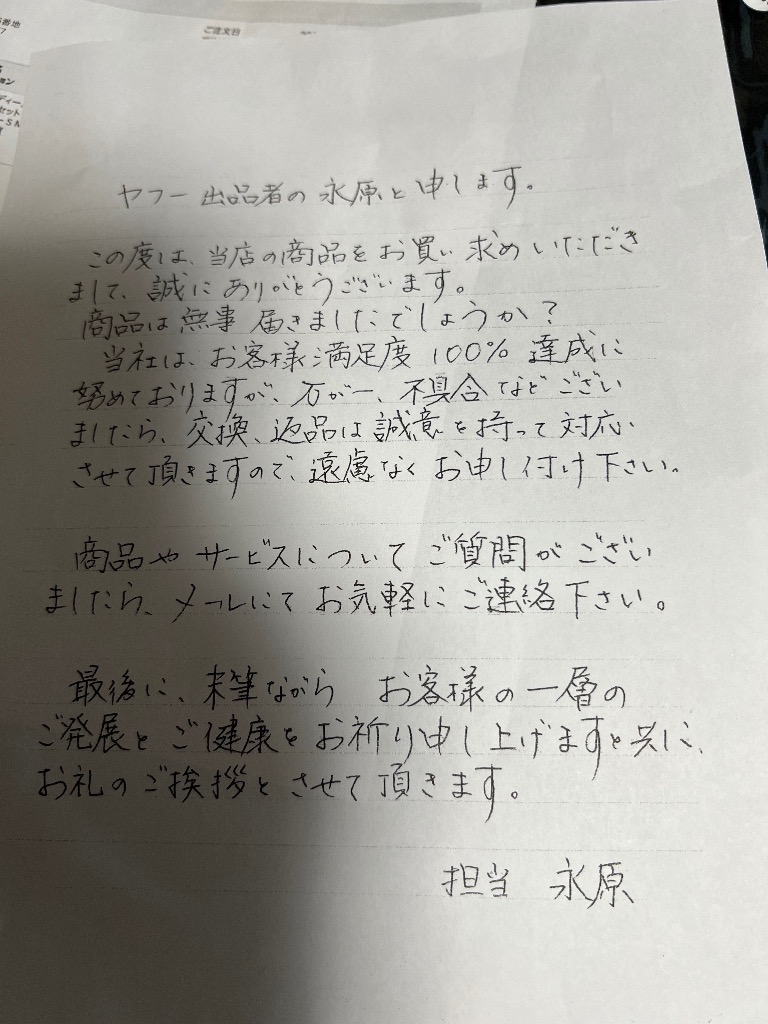 番地
7
ご注文日
ョン
ディー
セット
ヤフー出品者の永原と申します。
この度は、当店の商品をお買い求めいただき
まして、誠にありがとうございます。
商品は無事届きましたでしょうか?
当社は、お客様満足度100%達成に
努めておりますが、万が一、不具合などござい
ましたら、交換、返品は誠意を持って対応
させて頂きますので、遠慮なくお申し付け下さい。
商品やサービスについてご質問がござい
ましたら、メールにてお気軽にご連絡下さい。
最後に、末筆ながら お客様の一層の
ご発展とご健康をお祈り申し上げますと共に、
お礼のご挨拶とさせて頂きます。
担当 永原